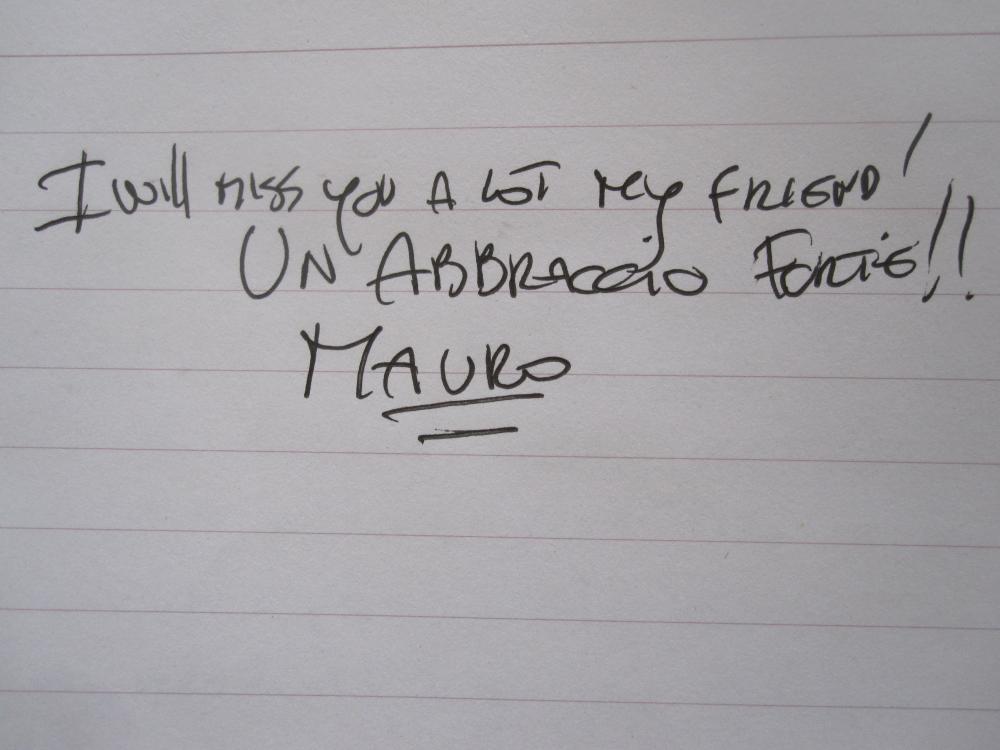 I will miss you A LOT My FRIEND!
UN ABBRACCIO FORTE!!
MAURO